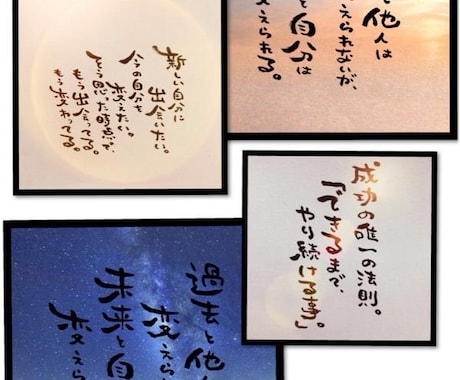 新しい自分に
出会いたい。
今の自分を
変えたい。
そう思った時点で、
もう出会ってる。
もう変わってる。
と他人は
えられないが、
と自分は
えられる。
成功の唯一の法則。
「できるまで、
やり続ける事」。
過去と他
変えら
未来と自
変えら